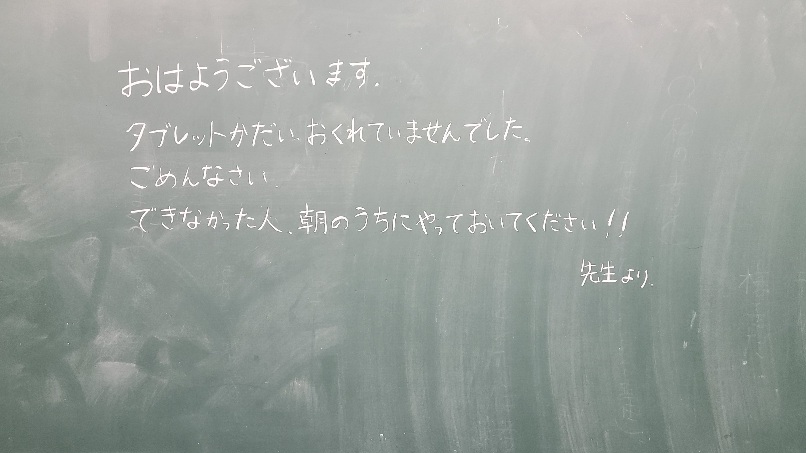 おはようございます.
タブレットかだい、おくれていませんでした。
ごめんなさい.
できなかった人、朝のうちにやっておいてください!!
先生より.